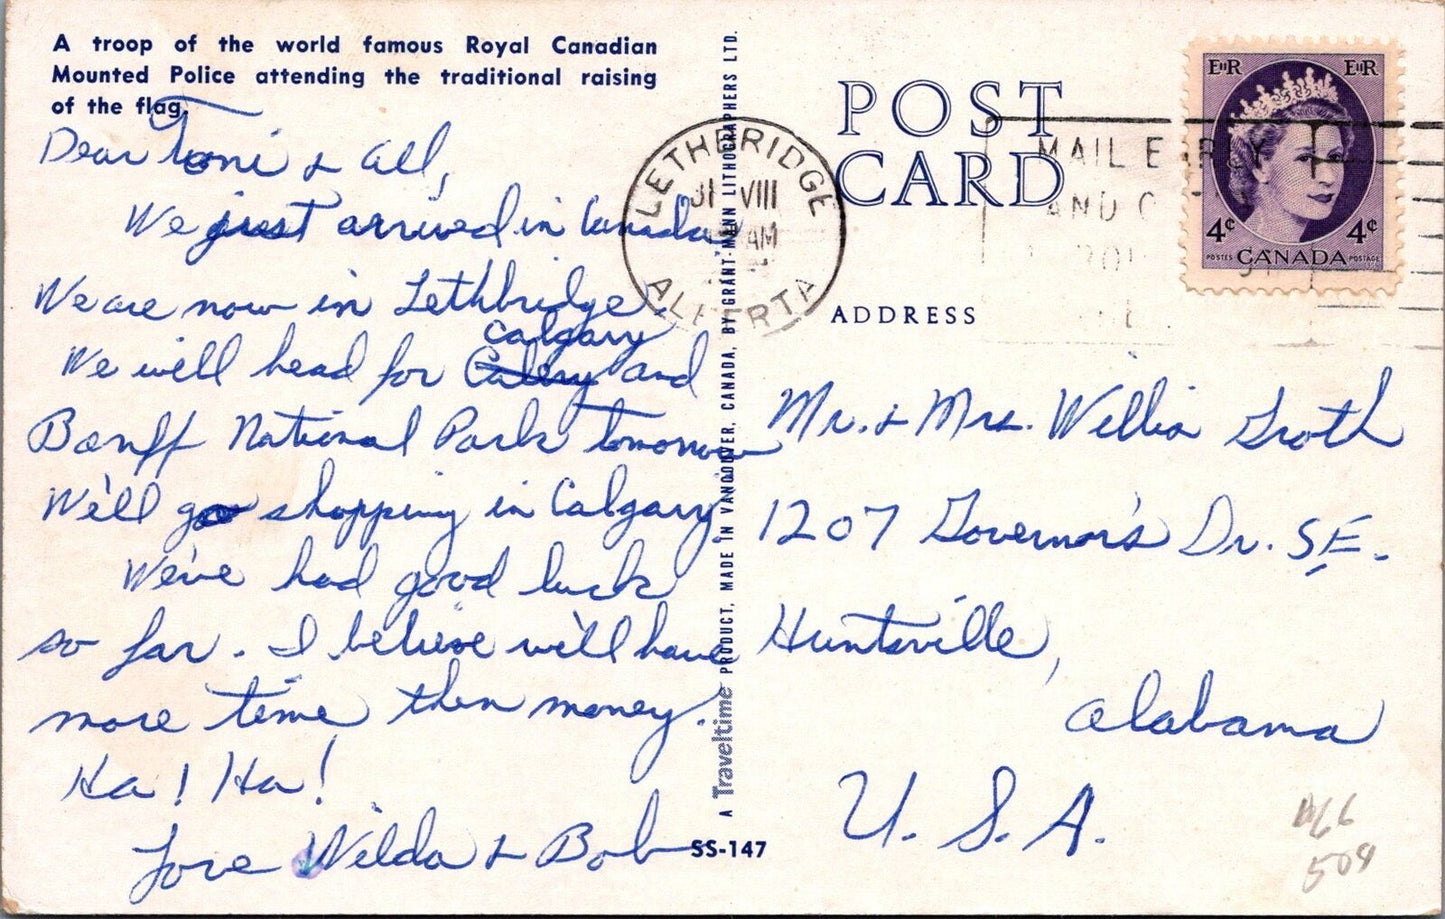 A troop of the world famous Royal Canadian
Mounted Police attending the traditional raising
of the flag.
Dear Toni & all,
We just arrived in Canada.
We are now in Lethbridge.
Calgary
We will head for and
Banff National Park tomorrow
We'll go shopping in Calgary.
We've had good luck
so far. I believe we'll have
more time then money.
Ha! Ha!
Love Wilda & Bob
A Traveltime PRODUCT, MADE IN VANCOUVER, CANADA, BY GRANT-MANN LITHOGRAPHERS LTD.
SS-147
LETHBRIDGE
31 VIII
AM
ALBERTA
POST
CARD
MAIL EARLY
AND
EIIR EIIR
4¢ 4¢
POSTES CANADA POSTAGE
ADDRESS
Mr. & Mrs. Willis Groth
1207 Governor's Dr. SE.
Huntsville,
Alabama
U.S.A.
509